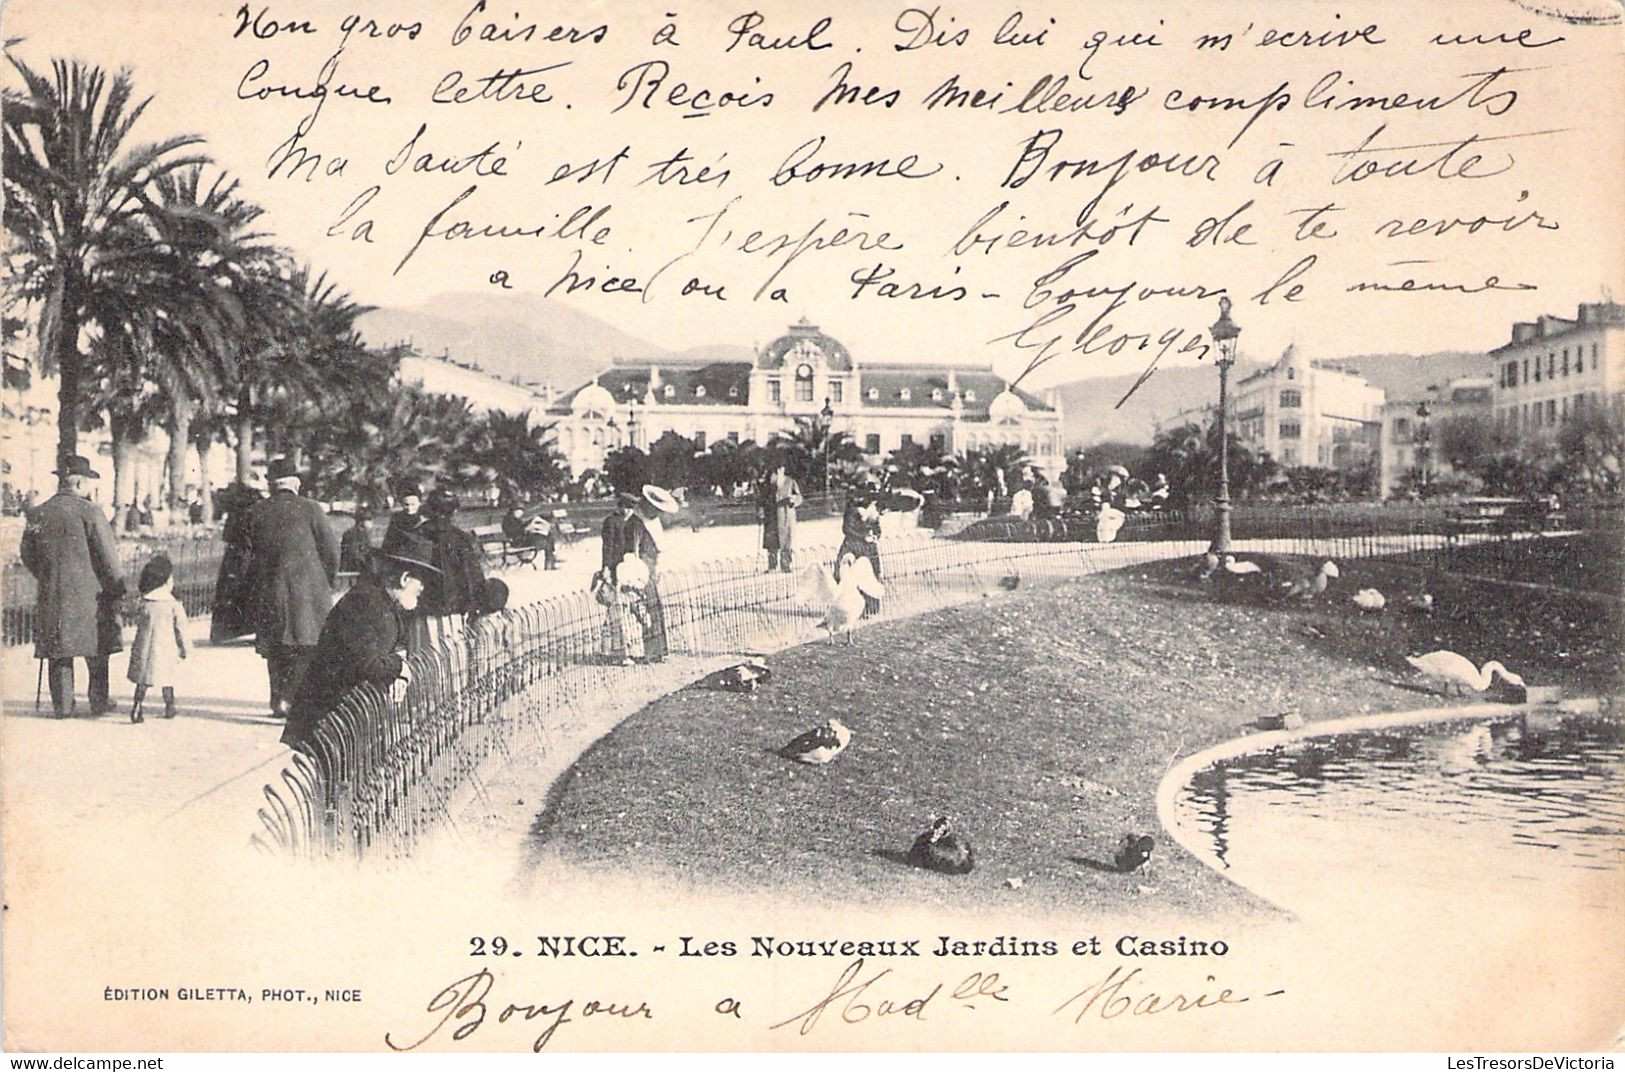 Un gros baisers à Paul. Dis lui qui m'ecrive une
longue lettre. Reçois mes meilleurs compliments
Ma Santé est trés bonne. Bonjour à toute
la famille. J'espère bientôt de te revoir
a Nice ou a Paris - Toujour le même
Georges
29. NICE. - Les Nouveaux Jardins et Casino
ÉDITION GILETTA, PHOT., NICE
Bonjour a Madlle Marie -
LesTresorsDeVictoria